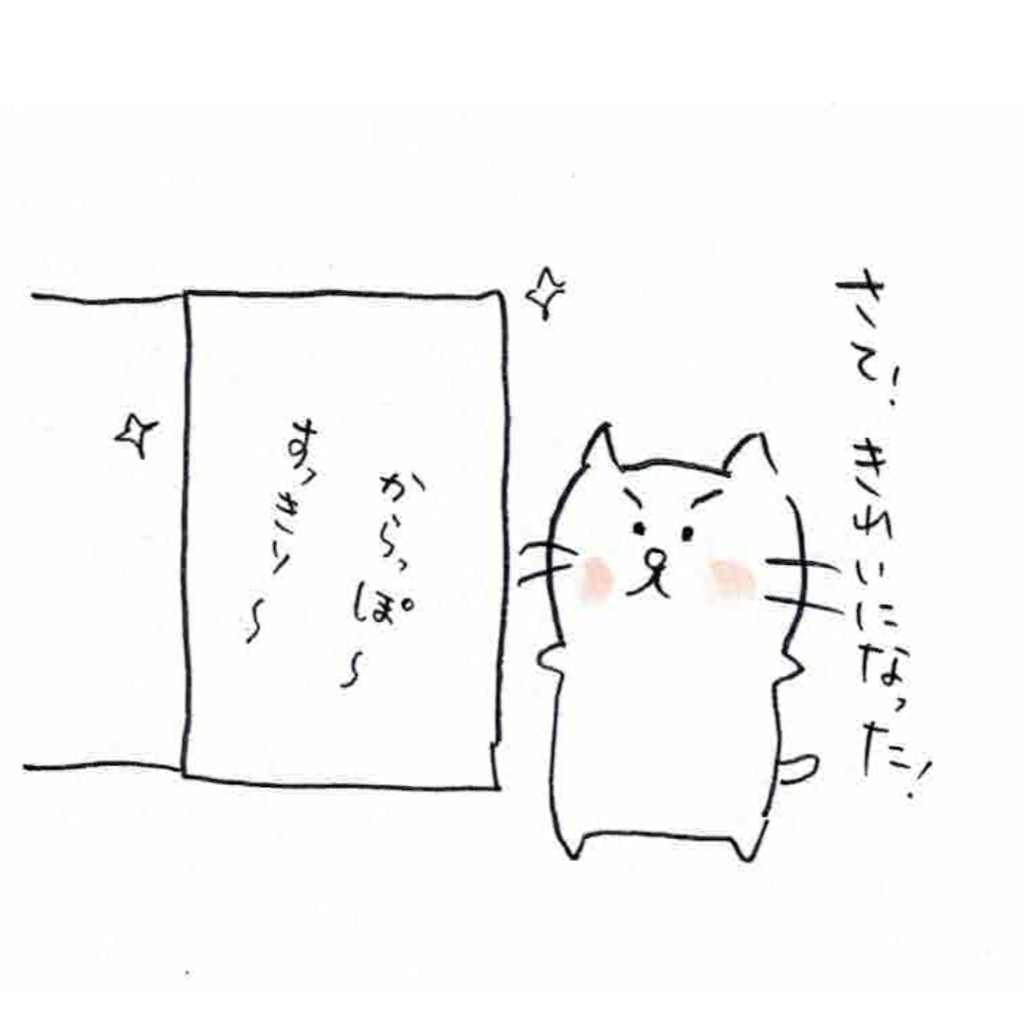 さて！きれいになった！
からっぽ〜
すっきり〜